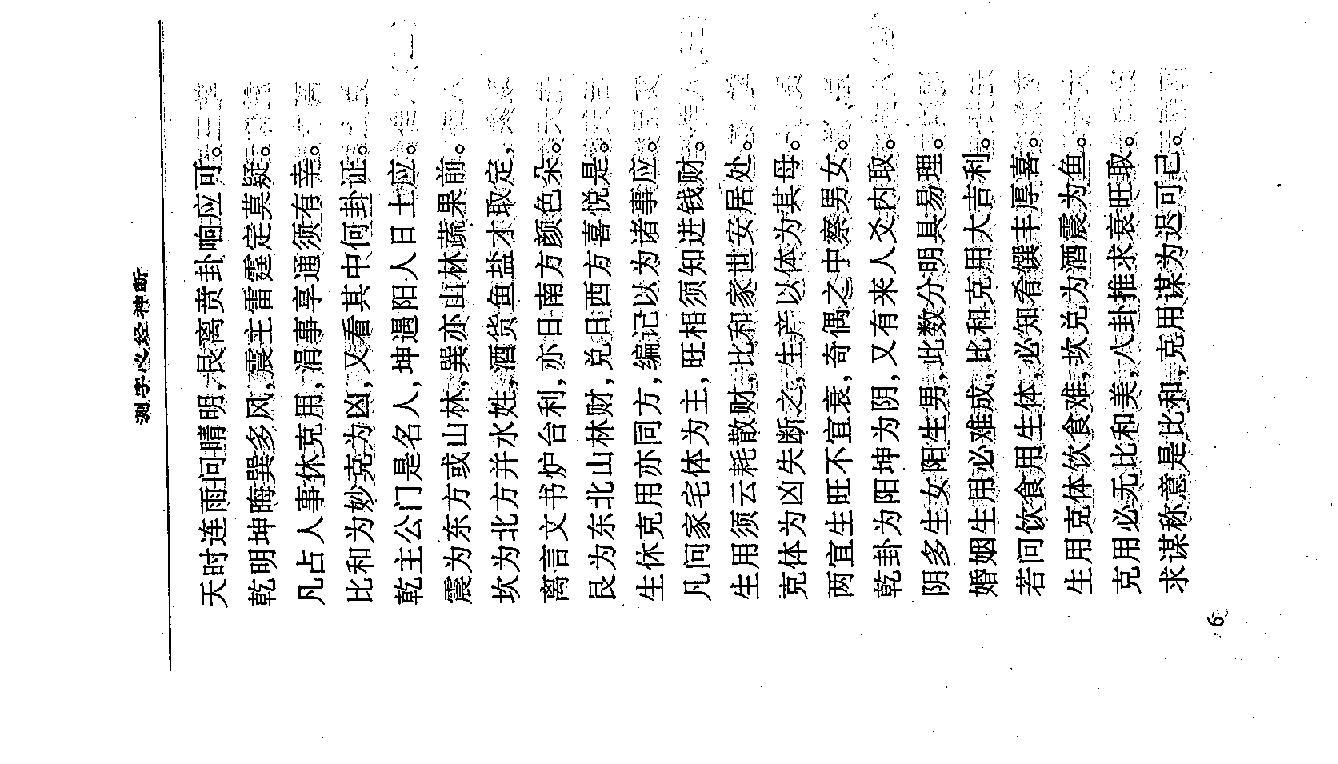 测字心经神断
天时连雨问晴明,艮离贲卦响应可。
乾明坤晦巽多风,震主雷霆定莫疑。
凡占人事体克用,涓事享通须有幸。
比和为妙克为凶,又看其中何卦证。
乾主公门是名人,坤遇阳人日土应。
震为东方或山林,巽亦山林蔬果前。
坎为北方并水姓,酒货鱼盐才取定,
离言文书炉台利,亦日南方颜色朵。
艮为东北山林财,兑日西方喜悦是。
生体克用亦同方,编记以为诸事应。
凡问家宅体为主,旺相须知进钱财。
生用须云耗散财,比和家世安居处。
克体为凶失断之,生产以体为其母。
两宜生旺不宜衰,奇偶之中察男女。
乾卦为阳坤为阴,又有来人爻内取。
阴多生女阳生男,此数分明具易理。
婚姻生用必难成,比和克用大吉利。
若问饮食用生体,必知肴馔丰厚喜。
生用克体饮食难,坎兑为酒震为鱼。
克用必无比和美,八卦推求衰旺取。
求谋称意是比和,克用谋为迟可已。
6